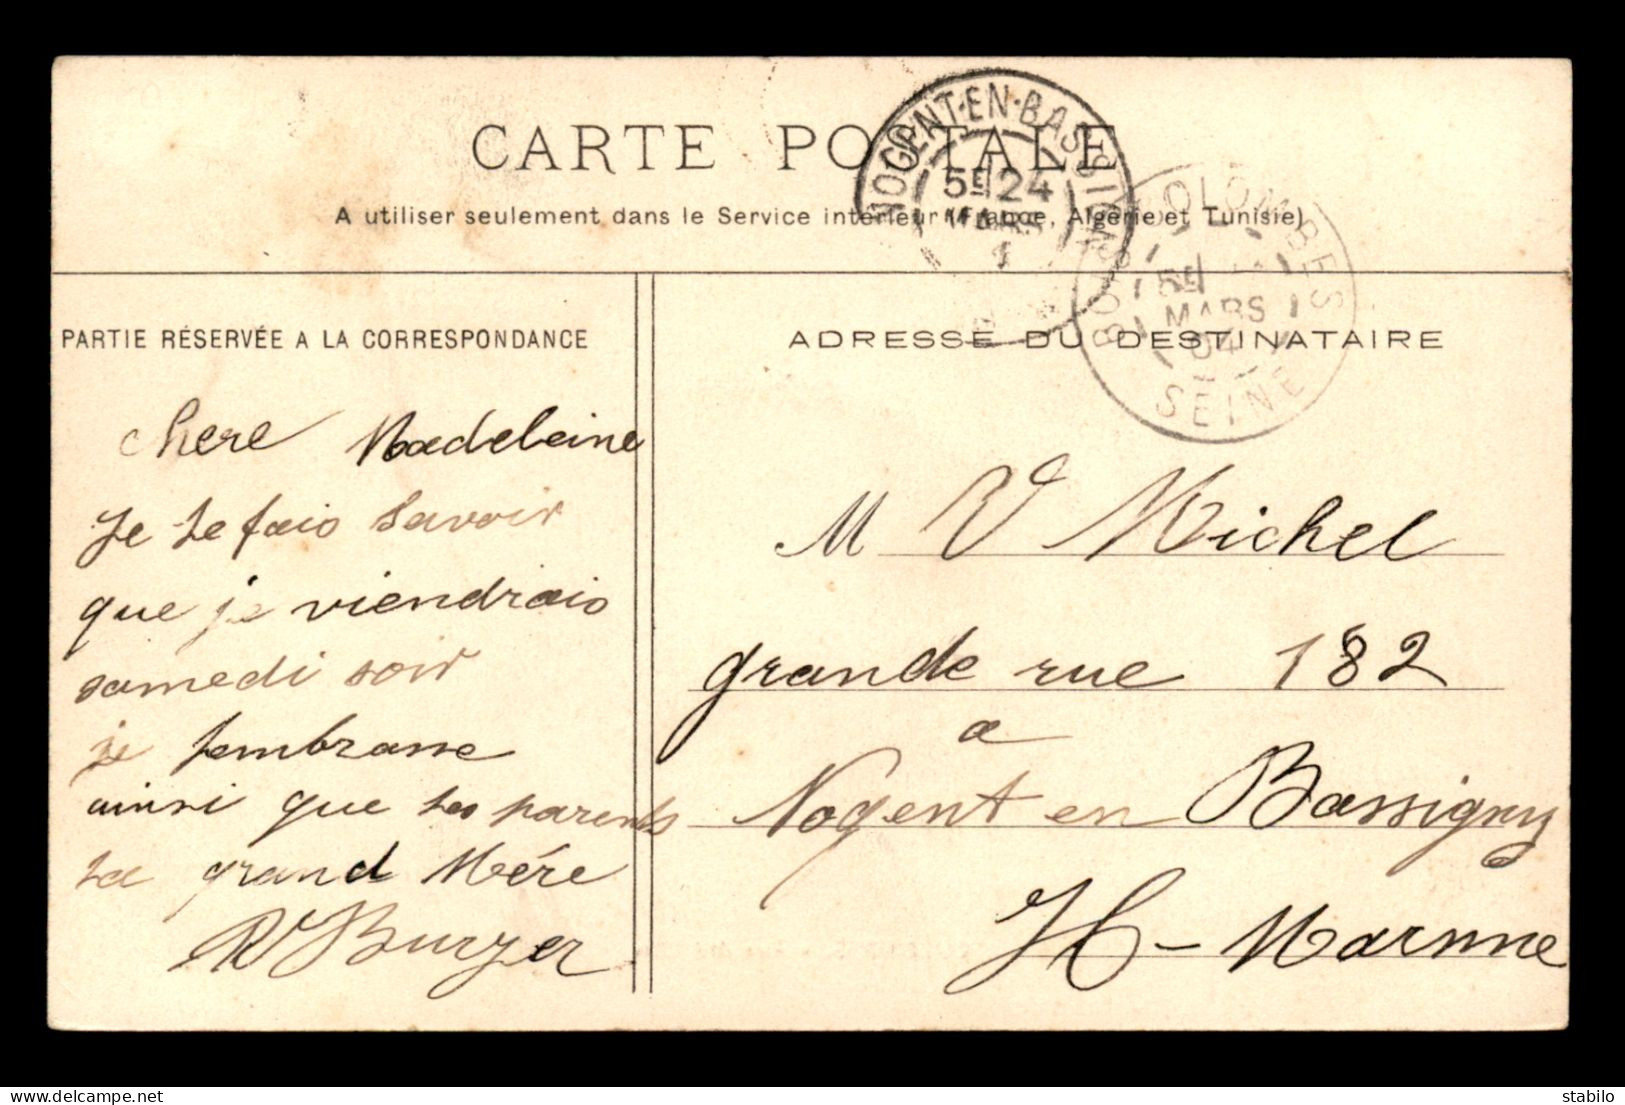 CARTE POSTALE
A utiliser seulement dans le Service intérieur (France, Algérie et Tunisie)
NOGENT-EN-BASSIGNY
5E 24
MARS
BOIS COLOMBES
5E
MARS
04
SEINE
PARTIE RÉSERVÉE A LA CORRESPONDANCE
chere Madeleine
Je te fais savoir
que je viendrais
samedi soir
je tembrasse
ainsi que tes parents
ta grand Mére
Burger
ADRESSE DU DESTINATAIRE
M V Michel
grande rue 182
a
Nogent en Bassigny
H-Marnne
stabilo